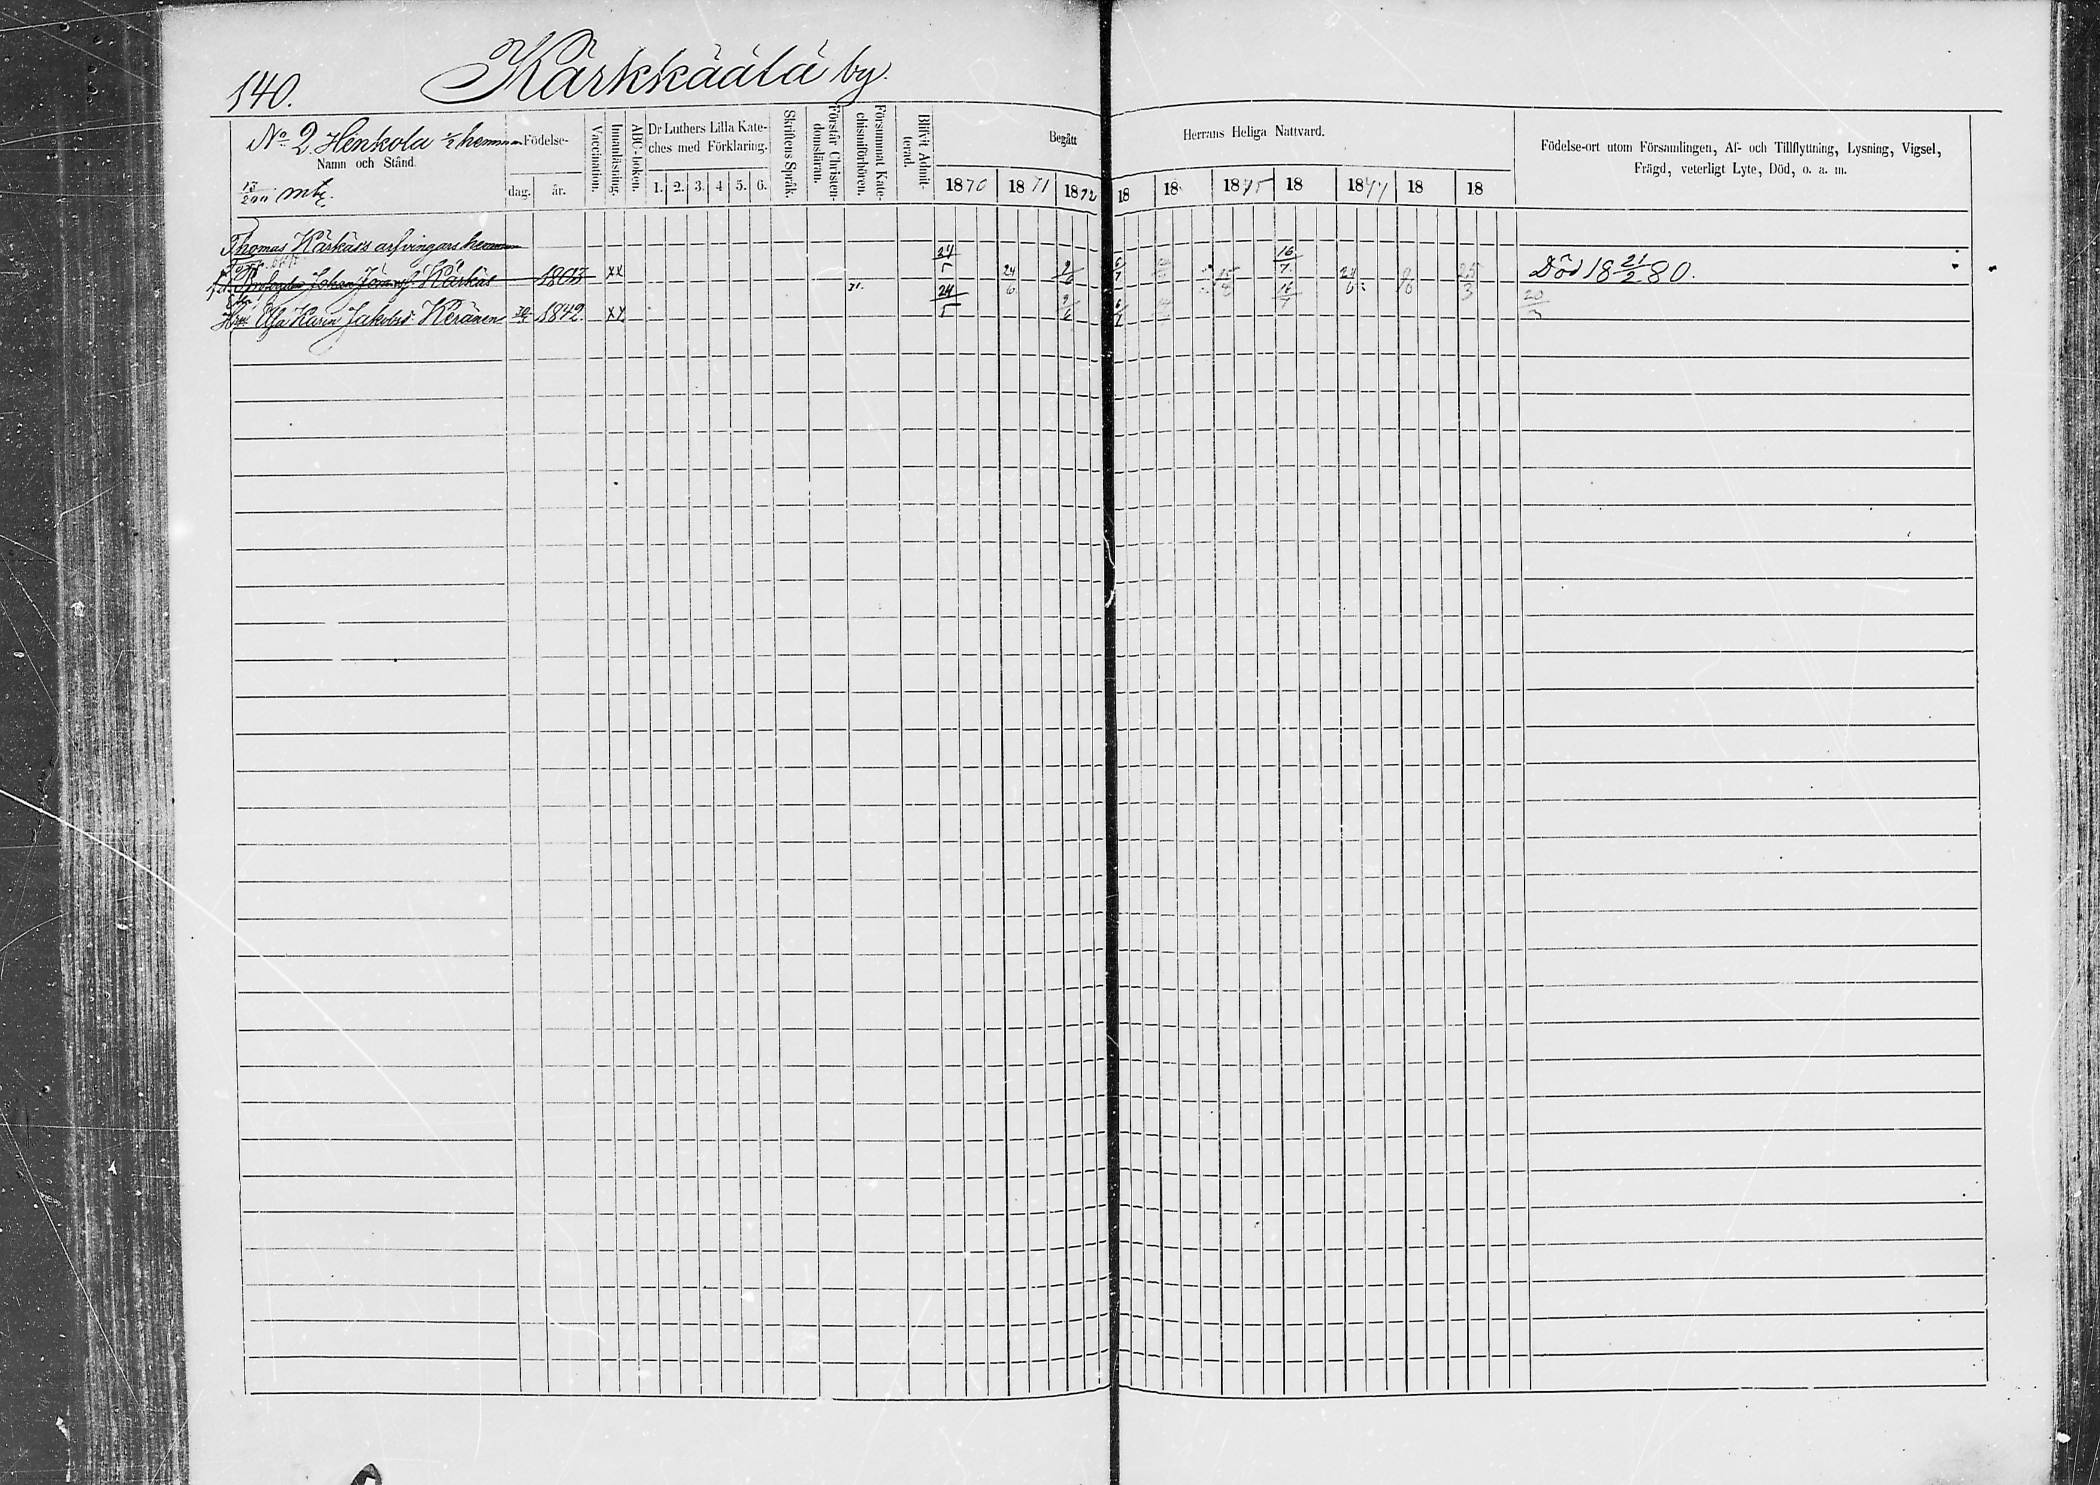 140.
Kärkkäälä by.
No 2 Henkola 1/2 hemman
Namn och Stånd.
13/200 mtl.
Födelse-
dag. år.
Vaccination.
Innanläsning.
ABC-boken.
Dr Luthers Lilla Kate-
ches med Förklaring.
1. 2. 3. 4 5. 6.
Skriftens Språk.
Förstår Christen-
domsläran.
Försummat Kate-
chismiförhören.
Blifvit Admit-
terad.
Begått
1870 1871 1872
Herrans Heliga Nattvard.
18 18 1875 18 1877 18 18
Födelse-ort utom Församlingen, Af- och Tillflyttning, Lysning, Vigsel,
Frägd, veterligt Lyte, Död, o. a. m.
Thomas Kärkäs arfvingars hemman
Johan Kärkäs 1803 xx 24/5 24/6 9/6 6/7 16/7 24/6 25/3 Död 18 21/2 80.
Karin Jakobsd. Keränen 1842. xx 71. 24/5 9/6 6/7 16/7 20/3